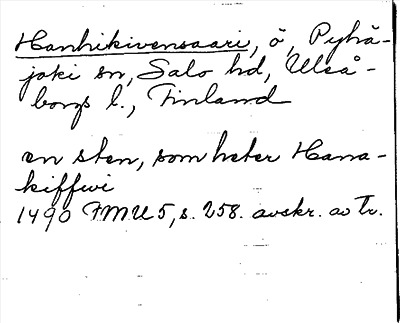 Hanhikivensaari, ö, Pyhä-
joki sn, Salo hd, Uleå-
borgs l., Finland
en sten, som heter Hana-
kiffwi
1490 FMU 5, s. 258. avskr. av Tr.